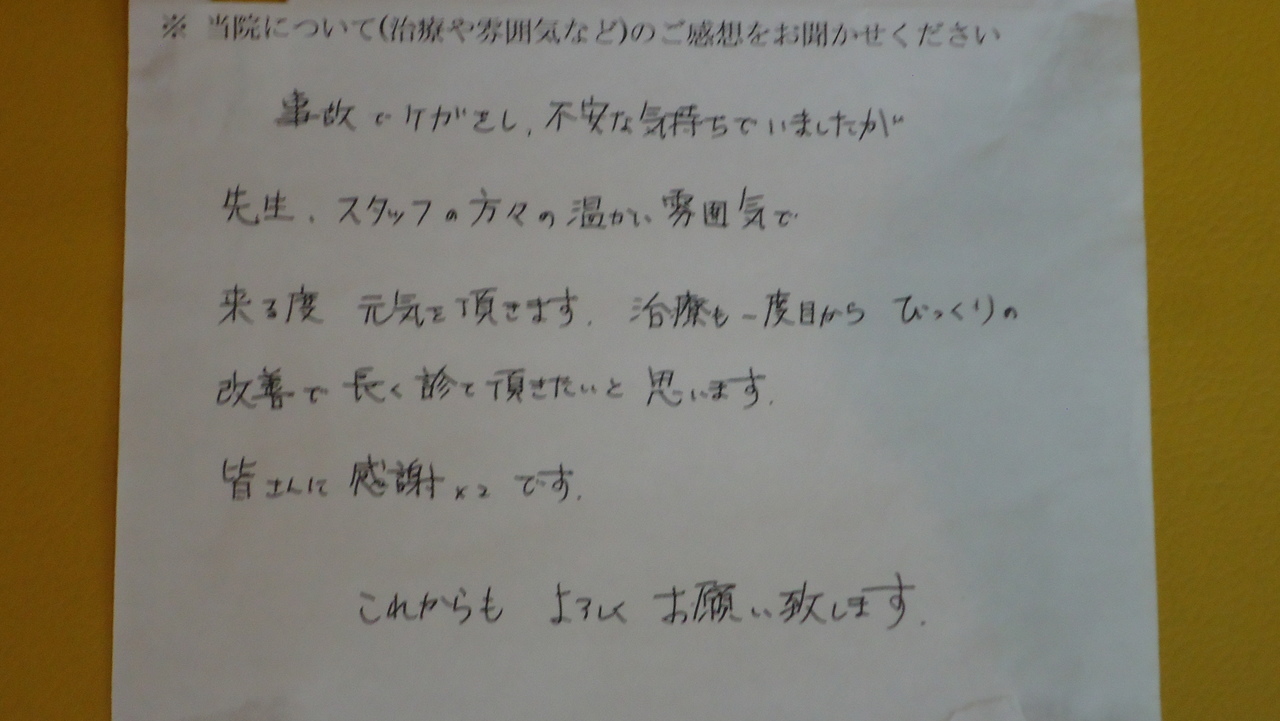 ※ 当院について(治療や雰囲気など)のご感想をお聞かせください
事故でケガをし、不安な気持ちでいましたが
先生、スタッフの方々の温かい雰囲気で
来る度 元気を頂きます。治療も一度目から びっくりの
改善で 長く診て頂きたいと思います。
皆さんに 感謝×2 です。
これからも よろしく お願い致します。